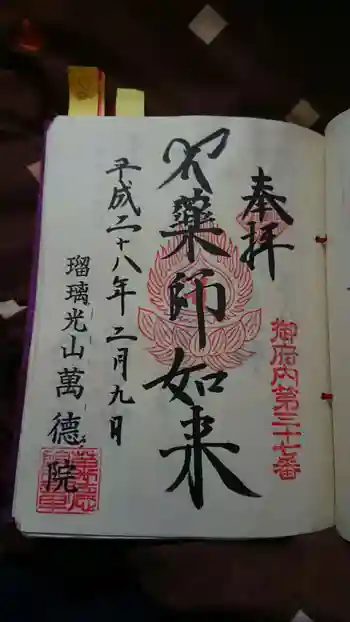 奉拝
御府内第三十七番
薬師如来
平成二十八年二月九日
瑠璃光山萬德院